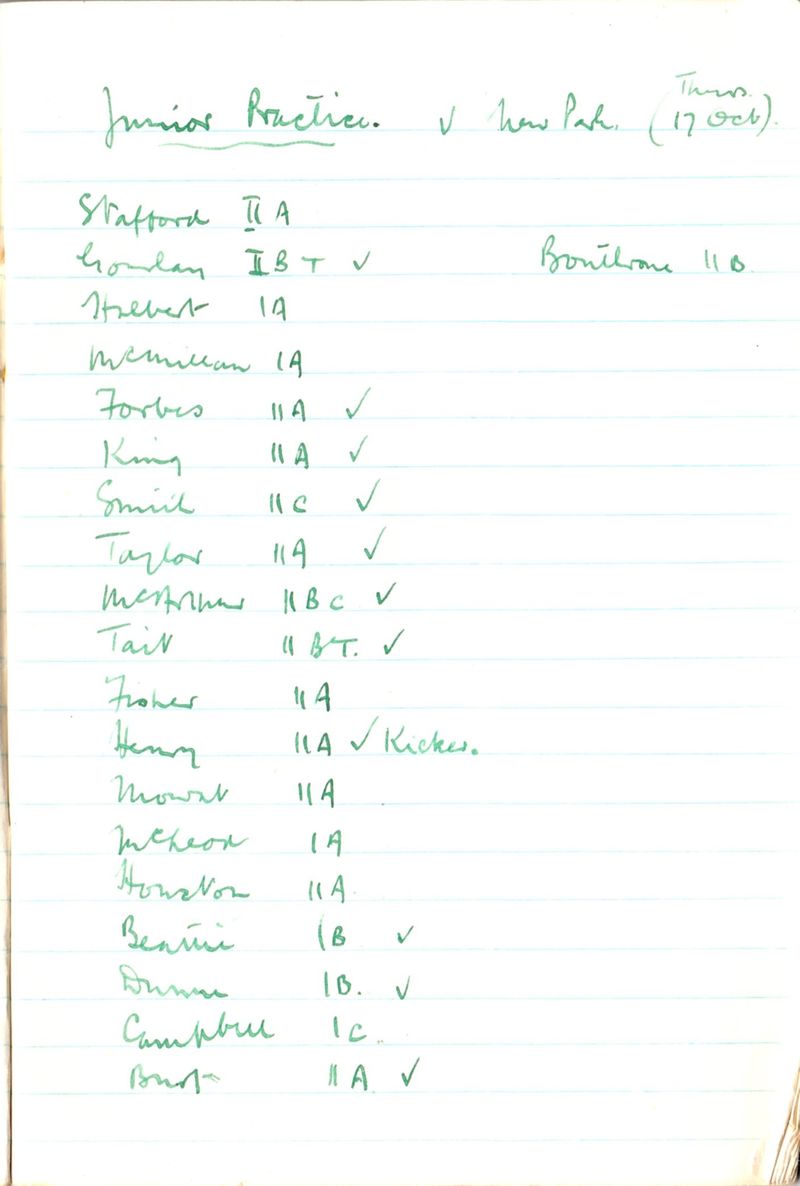 Thurs.
Junior Practice. v New Park. (17 Oct).
Stafford II A
Gourlay II B T ✓ Bonthrone II B.
Halbert IA
McMillan IA
Forbes IIA ✓
King IIA ✓
Smith IIC ✓
Taylor IIA ✓
McArthur IIBC ✓
Tait II BT. ✓
Fisher IIA
Henry IIA ✓ Kicker.
Mowat IIA
McLeod IA
Houston IIA
Beattie IB ✓
IB. ✓
Campbell IC.
IIA ✓